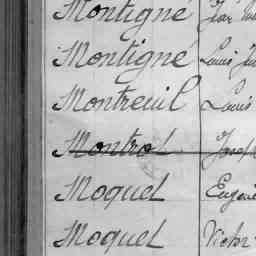 Montigné Jean
Montigné Louis
Montreuil Louis
Montrol Joseph
Moquel Eugène
Moquel Victor